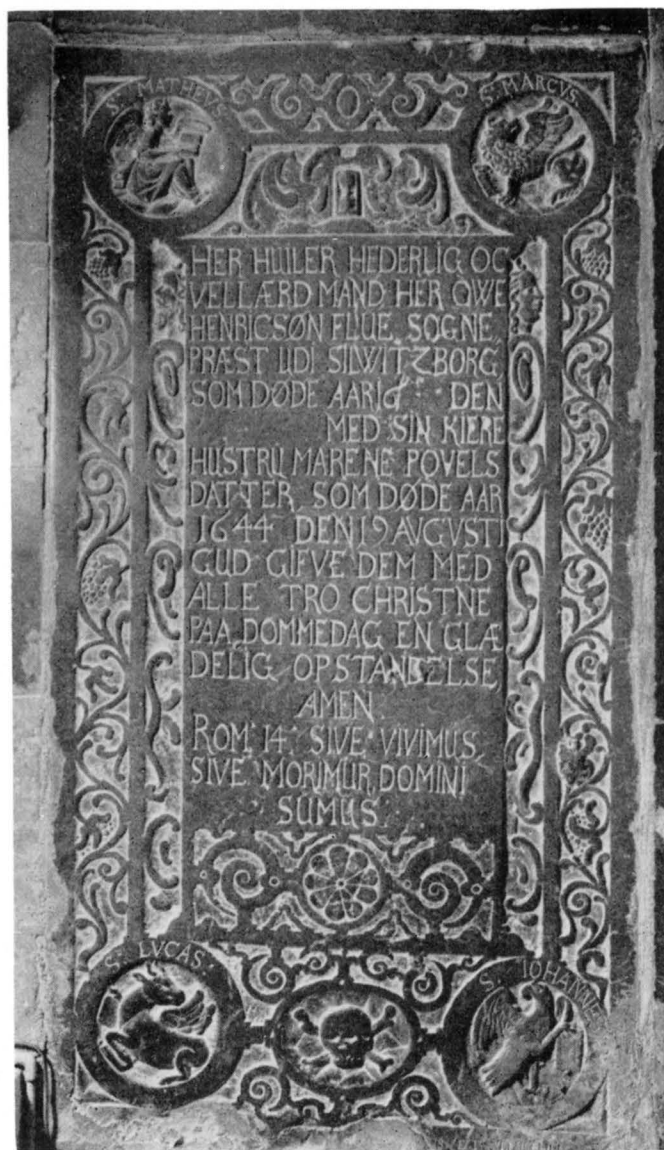 S. MATHEVS
S. MARCVS.
HER HUILER HEDERLIG OC
VELLÆRD MAND HER OWE
HENRICSØN FLUE SOGNE
PRÆST UDI SILWITZBORG
SOM DØDE AAR 16 DEN
MED SIN KIERE
HUSTRU MARENE POVELS
DATTER SOM DØDE AAR
1644 DEN 19 AVGVSTI
GUD GIFVE DEM MED
ALLE TRO CHRISTNE
PAA DOMMEDAG EN GLÆ
DELIG OPSTANDELSE
AMEN.
ROM 14 SIVE VIVIMUS
SIVE MORIMUR DOMINI
SUMUS
S. LVCAS.
S. IOHANNE